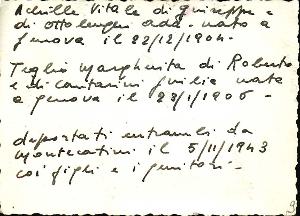 Achille Vitale di Giuseppe
di Ottolenghi Ada - nato a
Genova il 22/12/1904 -
Teglio Margherita di Roberto
e di Cantarini Giulia nata
a Genova il 23/1/1906 -
deportati entrambi da
Montecatini il 5/11/1943
coi figli e i genitori -